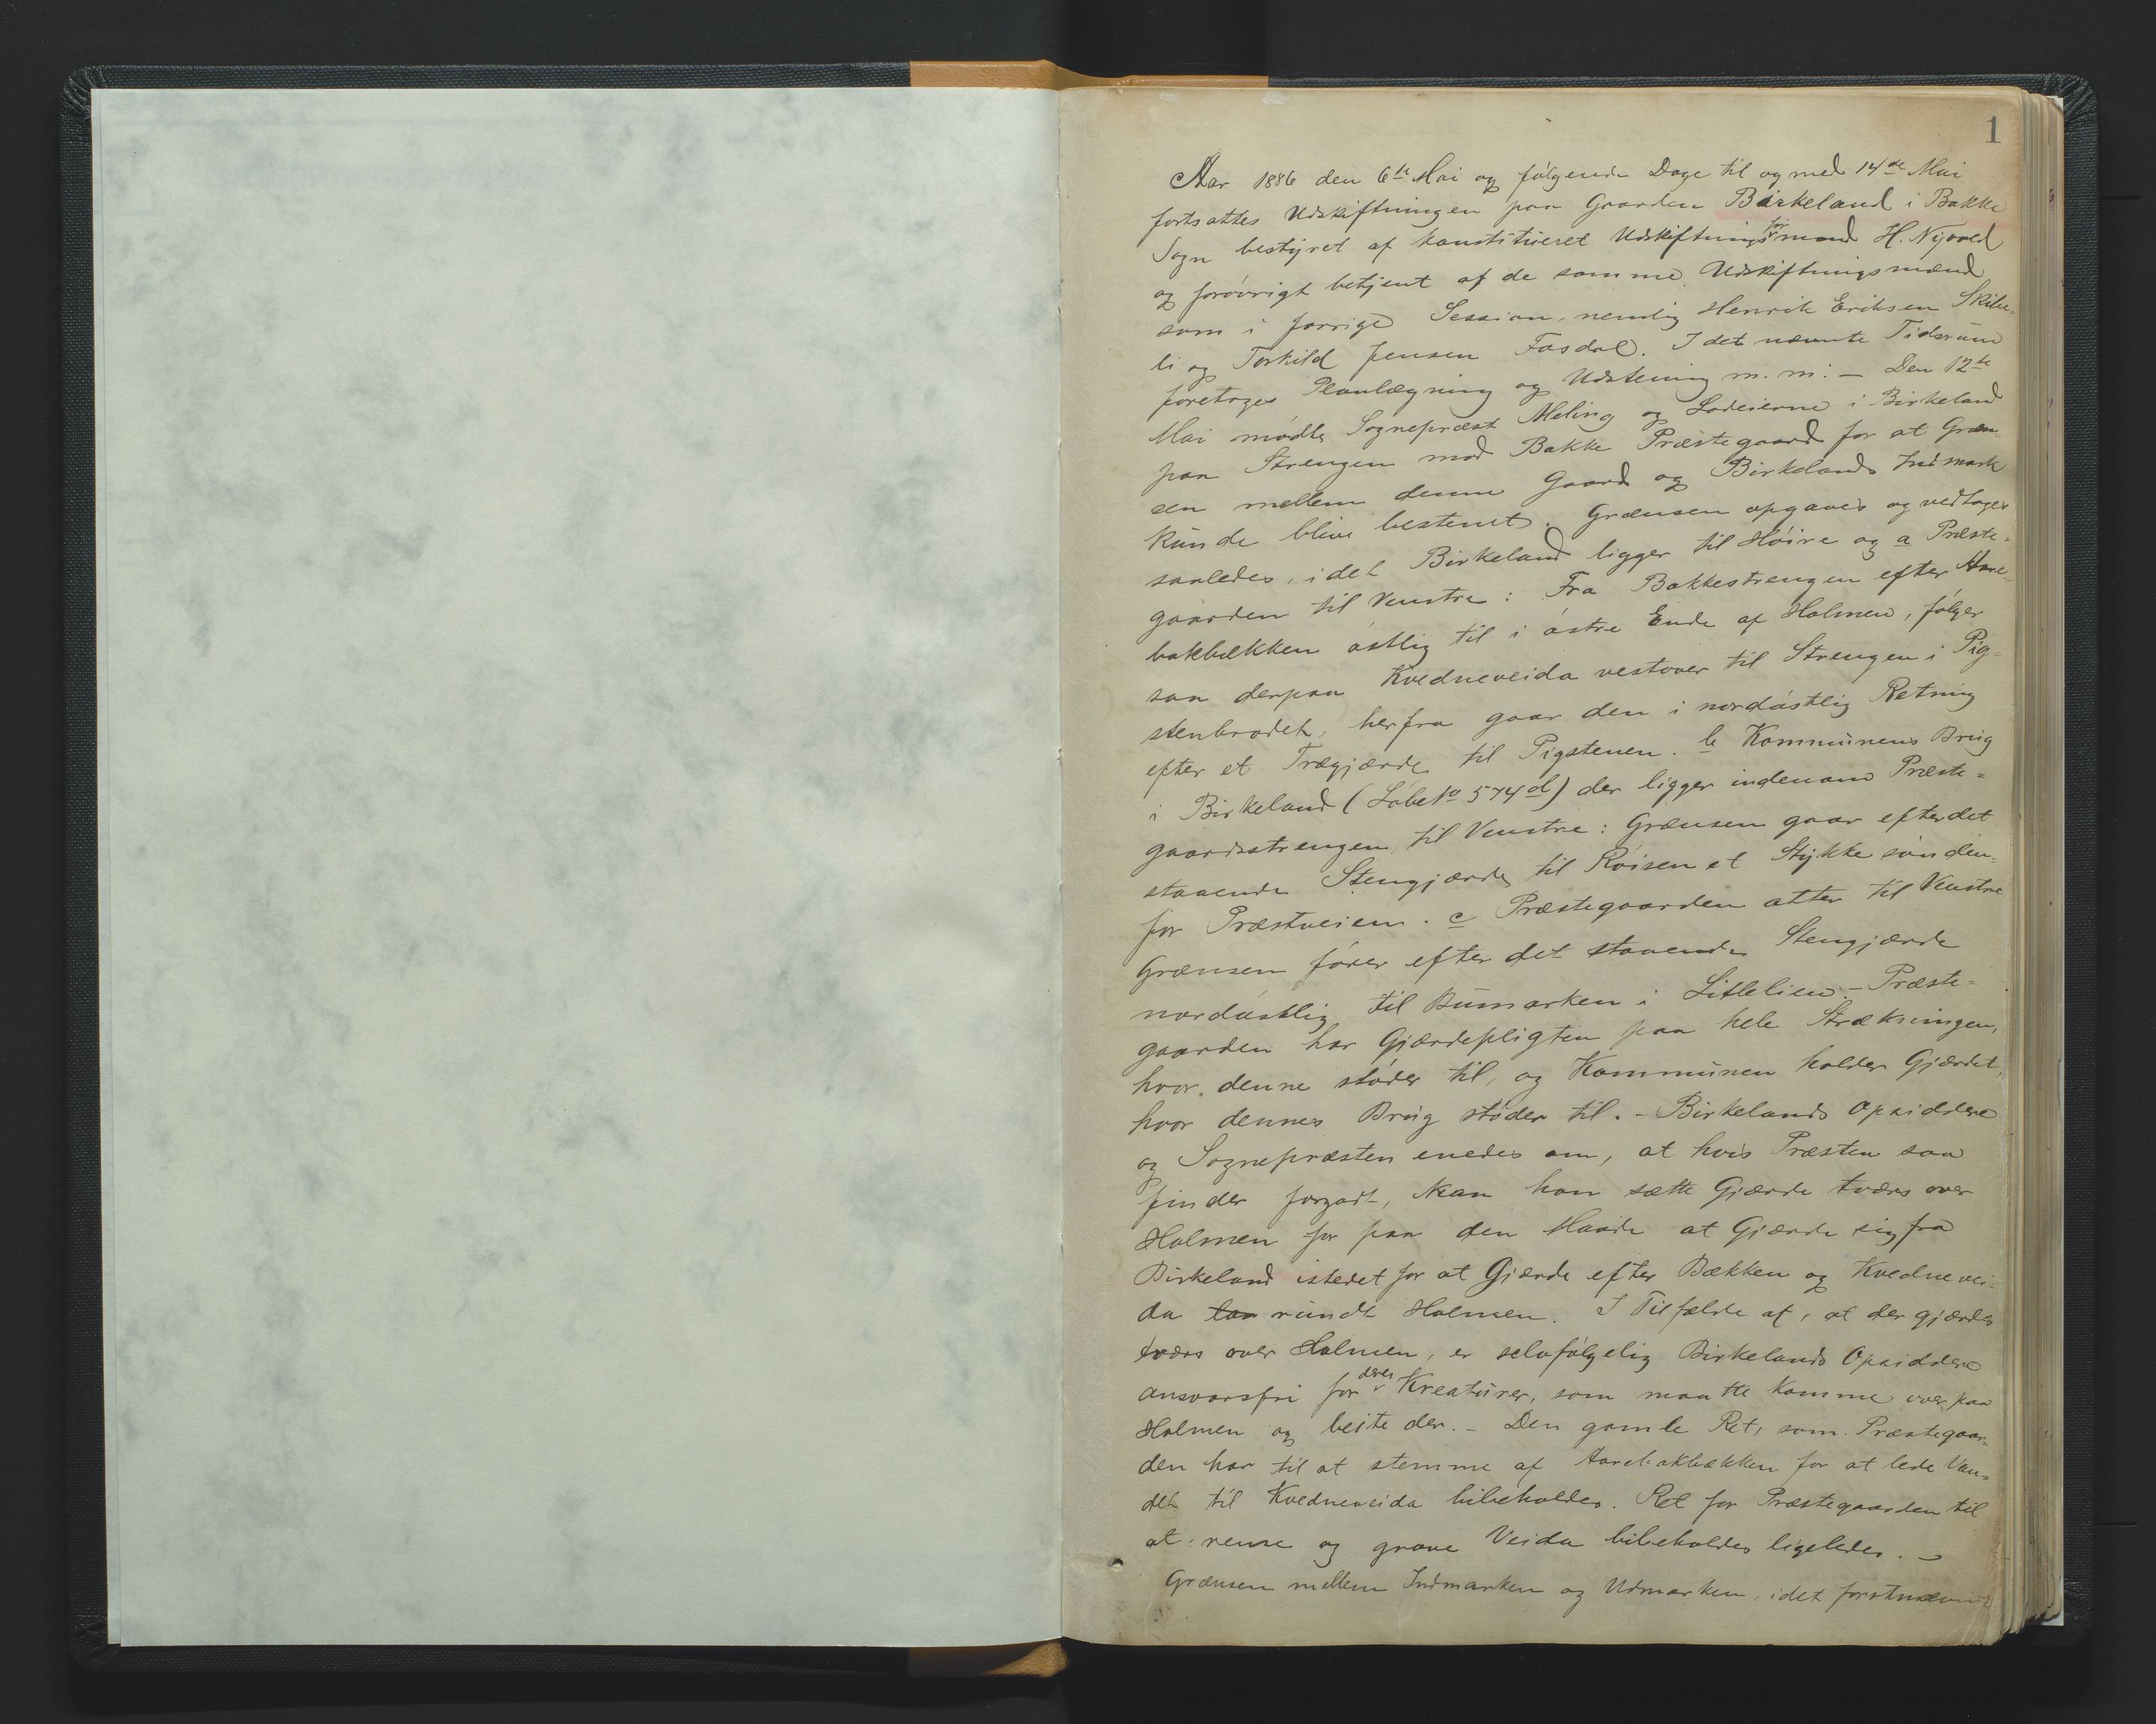 1
Aar 1886 den 6te Mai og følgende Dage til og med 14de Mai
fortsattes Udskiftningen paa Gaarden Birkeland i Bakke
Sogn bestyret af konstitueret Udskiftningsformand H. Nyvoed
og forøvrigt betjent af de samme Udskiftningsmænd
som i forrige Session, nemlig Henrik Eriksen Skibe-
li og Torkild Jensen Fosdal. I det nævnte Tidsrum
foretoges Planlægning og Udstening m. m: — Den 12te
Mai mødte Sognepræst Meling og Lodeierne i Birkeland
paa Strengen mod Bakke Præstegaard for at Græn-
sen mellem denne Gaard og Birkelands Indmark
kunde blive bestemt. Grænsen opgaves og vedtoges
saaledes, idet Birkeland ligger til Høire og a Præste-
gaarden til Venstre: Fra Bakkestrengen efter Aare-
bakbækken østlig til i østre Ende af Holmen, følger
saa derpaa Kvedneveida vestover til Strengen i Pig-
stenbrodet, herfra gaar den i nordøstlig Retning
efter et Trægjærde til Pigstenen. b Kommunens Brug
i Birkeland (Løbe No 574d) der ligger indenom Præste-
gaardsstrengen, til Venstre: Grænsen gaar efter det
staaende Stengjærde til Røisen et Stykke sønden-
for Præstveien. c Præstegaarden atter til Venstre
Grænsen fører efter det staaende Stengjærde
nordøstlig til Bumarken i Litlelien. – Præste-
gaarden har Gjærdepligten paa hele Strækningen,
hvor denne støder til, og Kommunen holder Gjærdet,
hvor dennes Brug støder til. – Birkelands Opsiddere
og Sognepræsten enedes om, at hvis Præsten saa
finder forgodt, kan han sætte Gjærde tværs over
Holmen for paa den Maade at Gjærde sig fra
Birkeland istedet for at Gjærde efter Bækken og Kvednevei-
da rundt Holmen. I Tilfælde af, at der gjærdes
tværs over Holmen, er selvfølgelig Birkelands Opsiddere
ansvarsfri for deres Kreaturer, som maatte komme over paa
Holmen og beite der. – Den gamle Ret, som Præstegaar-
den har til at stemme af Aarebakbækken for at lede Van-
det til Kvedneveida bibeholdes. Ret for Præstegaarden til
at rense og grave Veida bibeholdes ligeledes. –
Grænsen mellem Indmarken og Udmarken, idet førstnævnte